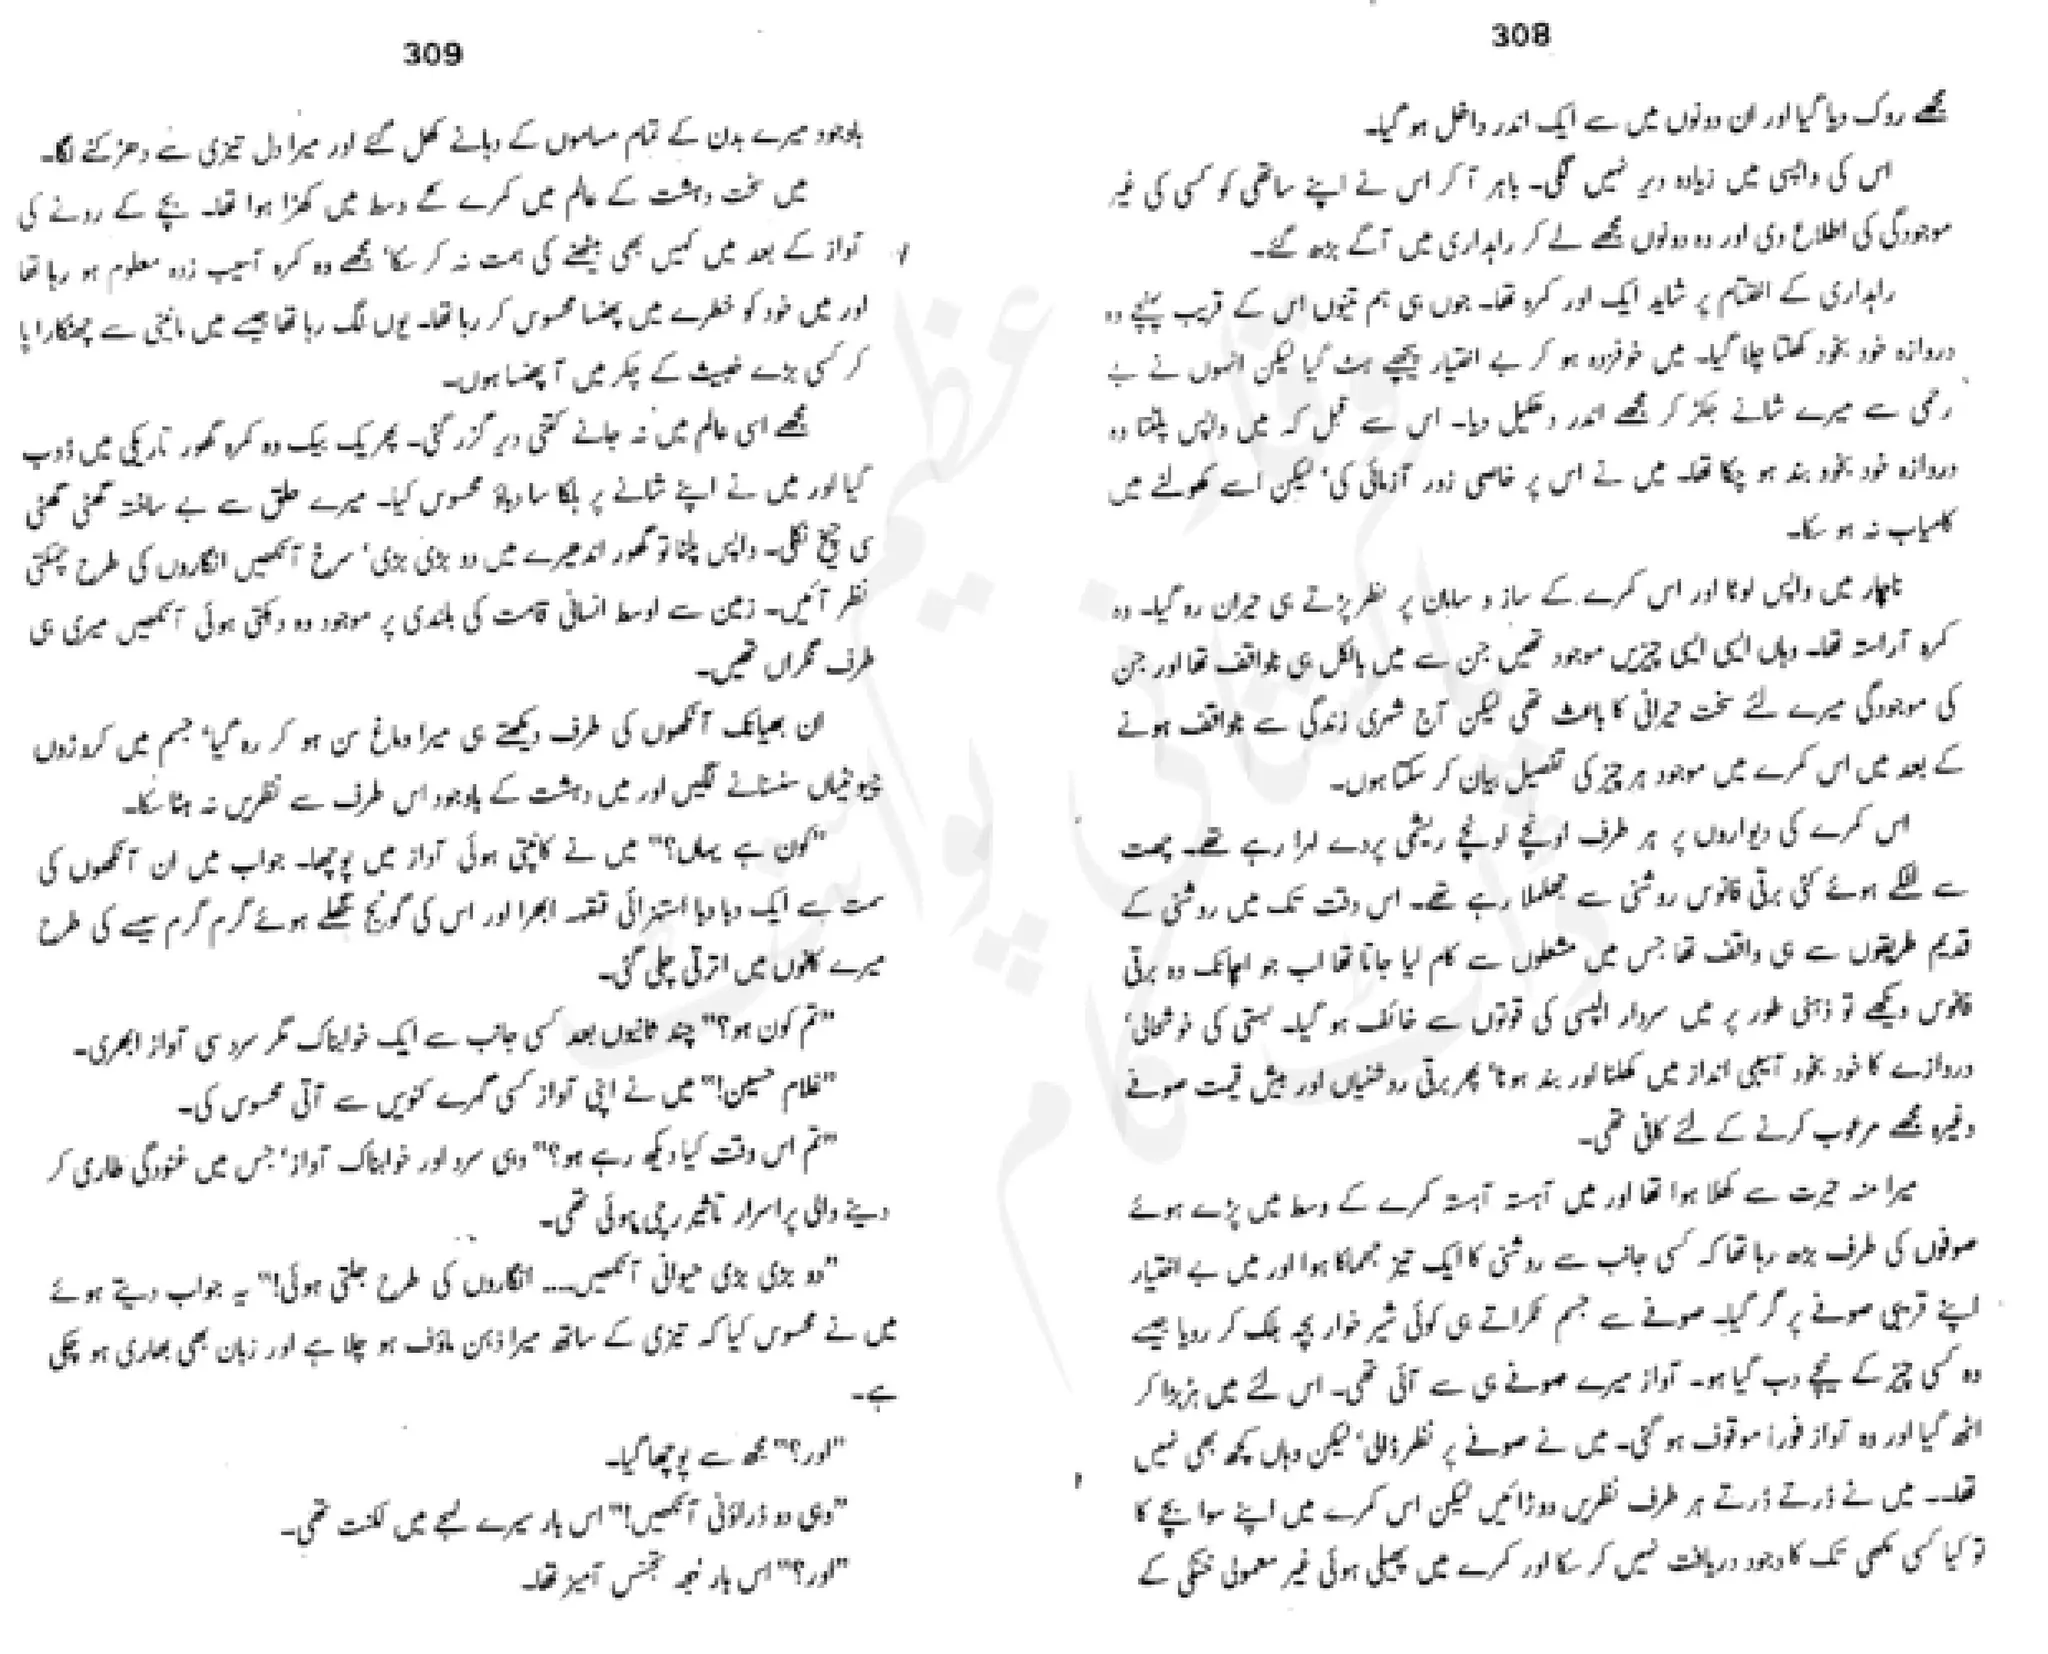 308
مجھے روک دیا گیا اور ان دونوں میں سے ایک اندر داخل ہو گیا۔
اس کی واپسی میں زیادہ دیر نہیں لگی۔ باہر آ کر اس نے اپنے ساتھی کو کسی کی غیر
موجودگی کی اطلاع دی اور وہ دونوں مجھے لے کر راہداری میں آگے بڑھ گئے۔
راہداری کے اختتام پر شاید ایک اور کمرہ تھا۔ جوں ہی ہم تینوں اس کے قریب پہنچے وہ
دروازہ خود بخود کھلتا چلا گیا۔ میں خوفزدہ ہو کر بے اختیار پیچھے ہٹ گیا لیکن انہوں نے بے
رحمی سے میرے شانے جکڑ کر مجھے اندر دھکیل دیا۔ اس سے قبل کہ میں واپس پلٹتا وہ
دروازہ خود بخود بند ہو چکا تھا۔ میں نے اس پر خاصی زور آزمائی کی، لیکن اسے کھولنے میں
کامیاب نہ ہو سکا۔
ناچار میں واپس لوٹا اور اس کمرے کے ساز و سامان پر نظر پڑتے ہی حیران رہ گیا۔ وہ
کمرہ آراستہ تھا۔ وہاں ایسی ایسی چیزیں موجود تھیں جن سے میں بالکل ہی ناواقف تھا اور جن
کی موجودگی میرے لئے سخت حیرانی کا باعث تھی لیکن آج شہری زندگی سے ناواقف ہونے
کے بعد میں اس کمرے میں موجود ہر چیز کی تفصیل بیان کر سکتا ہوں۔
اس کمرے کی دیواروں پر ہر طرف اونچے اونچے ریشمی پردے لہرا رہے تھے۔ چھت
سے لٹکے ہوئے کئی برقی فانوس روشنی سے جھلملا رہے تھے۔ اس وقت تک میں روشنی کے
قدیم طریقوں سے ہی واقف تھا جس میں مشعلوں سے کام لیا جاتا تھا اب جو اچانک وہ برقی
فانوس دیکھے تو ذہنی طور پر میں سردار اپسی کی قوتوں سے خائف ہو گیا۔ بستی کی خوشحالی،
دروازے کا خود بخود آسیبی انداز میں کھلنا اور بند ہونا، پھر برقی روشنیاں اور بیش قیمت صوفے
وغیرہ مجھے مرعوب کرنے کے لئے کافی تھی۔
میرا منہ حیرت سے کھلا ہوا تھا اور میں آہستہ آہستہ کمرے کے وسط میں پڑے ہوئے
صوفوں کی طرف بڑھ رہا تھا کہ کسی جانب سے روشنی کا ایک تیز جھماکا ہوا اور میں بے اختیار
اپنے قریبی صوفے پر گر گیا۔ صوفے سے جسم ٹکراتے ہی کوئی شیر خوار بچہ بلک کر رویا جیسے
وہ کسی چیز کے نیچے دب گیا ہو۔ آواز میرے صوفے ہی سے آئی تھی۔ اس لئے میں ہڑبڑا کر
اٹھ گیا اور وہ آواز فوراً موقوف ہو گئی۔ میں نے صوفے پر نظر ڈالی، لیکن وہاں کچھ بھی نہیں
تھا۔۔ میں نے ڈرتے ڈرتے ہر طرف نظریں دوڑائیں لیکن اس کمرے میں اپنے سوا بچے کا
تو کیا کسی مکھی تک کا وجود دریافت نہیں کر سکا اور کمرے میں پھیلی ہوئی غیر معمولی خنکی کے
309
باوجود میرے بدن کے تمام مساموں کے دہانے کھل گئے اور میرا دل تیزی سے دھڑکنے لگا۔
میں سخت دہشت کے عالم میں کمرے کے وسط میں کھڑا ہوا تھا۔ بچے کے رونے کی
آواز کے بعد میں کہیں بھی بیٹھنے کی ہمت نہ کر سکا، مجھے وہ کمرہ آسیب زدہ معلوم ہو رہا تھا
اور میں خود کو خطرے میں پھنسا محسوس کر رہا تھا۔ یوں لگ رہا تھا جیسے میں مانیتی سے چھٹکارا پا
کر کسی بڑے خبیث کے چکر میں آ پھنسا ہوں۔
مجھے اسی عالم میں نہ جانے کتنی دیر گزر گئی۔ پھر یک بیک وہ کمرہ گھور تاریکی میں ڈوب
گیا اور میں نے اپنے شانے پر ہلکا سا دباؤ محسوس کیا۔ میرے حلق سے بے ساختہ گھٹی گھٹی
ہی چیخ نکلی۔ واپس پلٹا تو گھور اندھیرے میں دو بڑی بڑی، سرخ آنکھیں انگاروں کی طرح چمکتی
نظر آئیں۔ زمین سے اوسط انسانی قامت کی بلندی پر موجود وہ دہکتی ہوئی آنکھیں میری ہی
طرف نگراں تھیں۔
ان بھیانک آنکھوں کی طرف دیکھتے ہی میرا دماغ سن ہو کر رہ گیا، جسم میں کروڑوں
چیونٹیاں سنسنانے لگیں اور میں دہشت کے باوجود اس طرف سے نظریں نہ ہٹا سکا۔
"کون ہے یہاں؟" میں نے کانپتی ہوئی آواز میں پوچھا۔ جواب میں ان آنکھوں کی
سمت سے ایک دبا دبا استہزائی قہقہہ ابھرا اور اس کی گونج پگھلے ہوئے گرم گرم سیسے کی طرح
میرے کانوں میں اترتی چلی گئی۔
"تم کون ہو؟" چند ثانیوں بعد کسی جانب سے ایک خوابناک مگر سرد سی آواز ابھری۔
"غلام حسین!" میں نے اپنی آواز کسی گہرے کنویں سے آتی محسوس کی۔
"تم اس وقت کیا دیکھ رہے ہو؟" وہی سرد اور خوابناک آواز، جس میں غنودگی طاری کر
دینے والی پراسرار تاثیر رچی ہوئی تھی۔
"دو بڑی بڑی حیوانی آنکھیں.... انگاروں کی طرح جلتی ہوئی!" یہ جواب دیتے ہوئے
میں نے محسوس کیا کہ تیزی کے ساتھ میرا ذہن ماؤف ہو چلا ہے اور زبان بھی بھاری ہو چکی
ہے۔
"اور؟" مجھ سے پوچھا گیا۔
"وہی دو ڈراؤنی آنکھیں!" اس بار میرے لہجے میں لکنت تھی۔
"اور؟" اس بار لہجہ تجسس آمیز تھا۔
عظیم
پاکستانی پوائنٹ
ڈاٹ کام